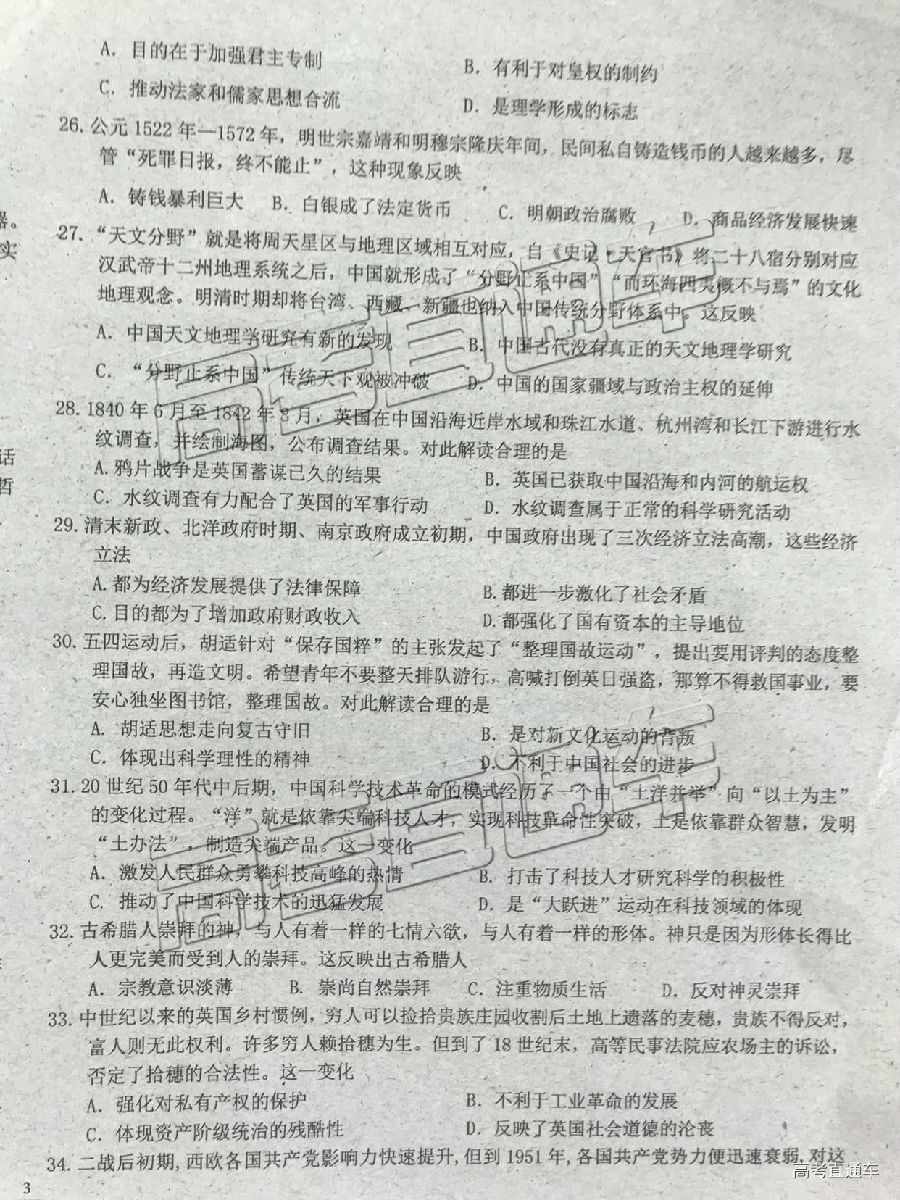 A．目的在于加强君主专制
B．有利于对皇权的制约
C．推动法家和儒家思想合流
D．是理学形成的标志
26.公元1522年—1572年，明世宗嘉靖和明穆宗隆庆年间，民间私自铸造钱币的人越来越多，尽
管“死罪日报，终不能止”，这种现象反映
A．铸钱暴利巨大 B．白银成了法定货币 C．明朝政治腐败 D．商品经济发展快速
27．“天文分野”就是将周天星区与地理区域相互对应，自《史记·天官书》将二十八宿分别对应
汉武帝十二州地理系统之后，中国就形成了“分野止系中国”“而环海四夷概不与焉”的文化
地理观念。明清时期却将台湾、西藏、新疆也纳入中国传统分野体系中。这反映
A．中国天文地理学研究有新的发现
B．中国古代没有真正的天文地理学研究
C．“分野止系中国”传统天下观被冲破
D．中国的国家疆域与政治主权的延伸
28.1840年6月至1842年8月，英国在中国沿海近岸水域和珠江水道、杭州湾和长江下游进行水
纹调查，并绘制海图，公布调查结果。对此解读合理的是
A.鸦片战争是英国蓄谋已久的结果
B．英国已获取中国沿海和内河的航运权
C．水纹调查有力配合了英国的军事行动
D．水纹调查属于正常的科学研究活动
29.清末新政、北洋政府时期、南京政府成立初期，中国政府出现了三次经济立法高潮，这些经济
立法
A.都为经济发展提供了法律保障
B.都进一步激化了社会矛盾
C.目的都为了增加政府财政收入
D.都强化了国有资本的主导地位
30.五四运动后，胡适针对“保存国粹”的主张发起了“整理国故运动”，提出要用评判的态度整
理国故，再造文明。希望青年不要整天排队游行，高喊打倒英日强盗，那算不得救国事业，要
安心独坐图书馆，整理国故。对此解读合理的是
A．胡适思想走向复古守旧
B．是对新文化运动的背叛
C．体现出科学理性的精神
D．不利于中国社会的进步
31.20世纪50年代中后期，中国科学技术革命的模式经历了一个由“土洋并举”向“以土为主”
的变化过程。“洋”就是依靠尖端科技人才，实现科技革命性突破，土是依靠群众智慧，发明
“土办法”，制造尖端产品。这一变化
A．激发人民群众勇攀科技高峰的热情
B．打击了科技人才研究科学的积极性
C．推动了中国科学技术的迅猛发展
D．是“大跃进”运动在科技领域的体现
32.古希腊人崇拜的神，与人有着一样的七情六欲，与人有着一样的形体。神只是因为形体长得比
人更完美而受到人的崇拜。这反映出古希腊人
A．宗教意识淡薄 B．崇尚自然崇拜 C．注重物质生活 D．反对神灵崇拜
33.中世纪以来的英国乡村惯例，穷人可以捡拾贵族庄园收割后土地上遗落的麦穗，贵族不得反对，
富人则无此权利。许多穷人赖拾穗为生。但到了18世纪末，高等民事法院应农场主的诉讼，
否定了拾穗的合法性。这一变化
A．强化对私有产权的保护
B．不利于工业革命的发展
C．体现资产阶级统治的残酷性
D．反映了英国社会道德的沦丧
34.二战后初期,西欧各国共产党影响力快速提升,但到1951年,各国共产党势力便迅速衰弱,对这
3
器。
实
话
哲
高考直通车
高考直通车
高考直通车